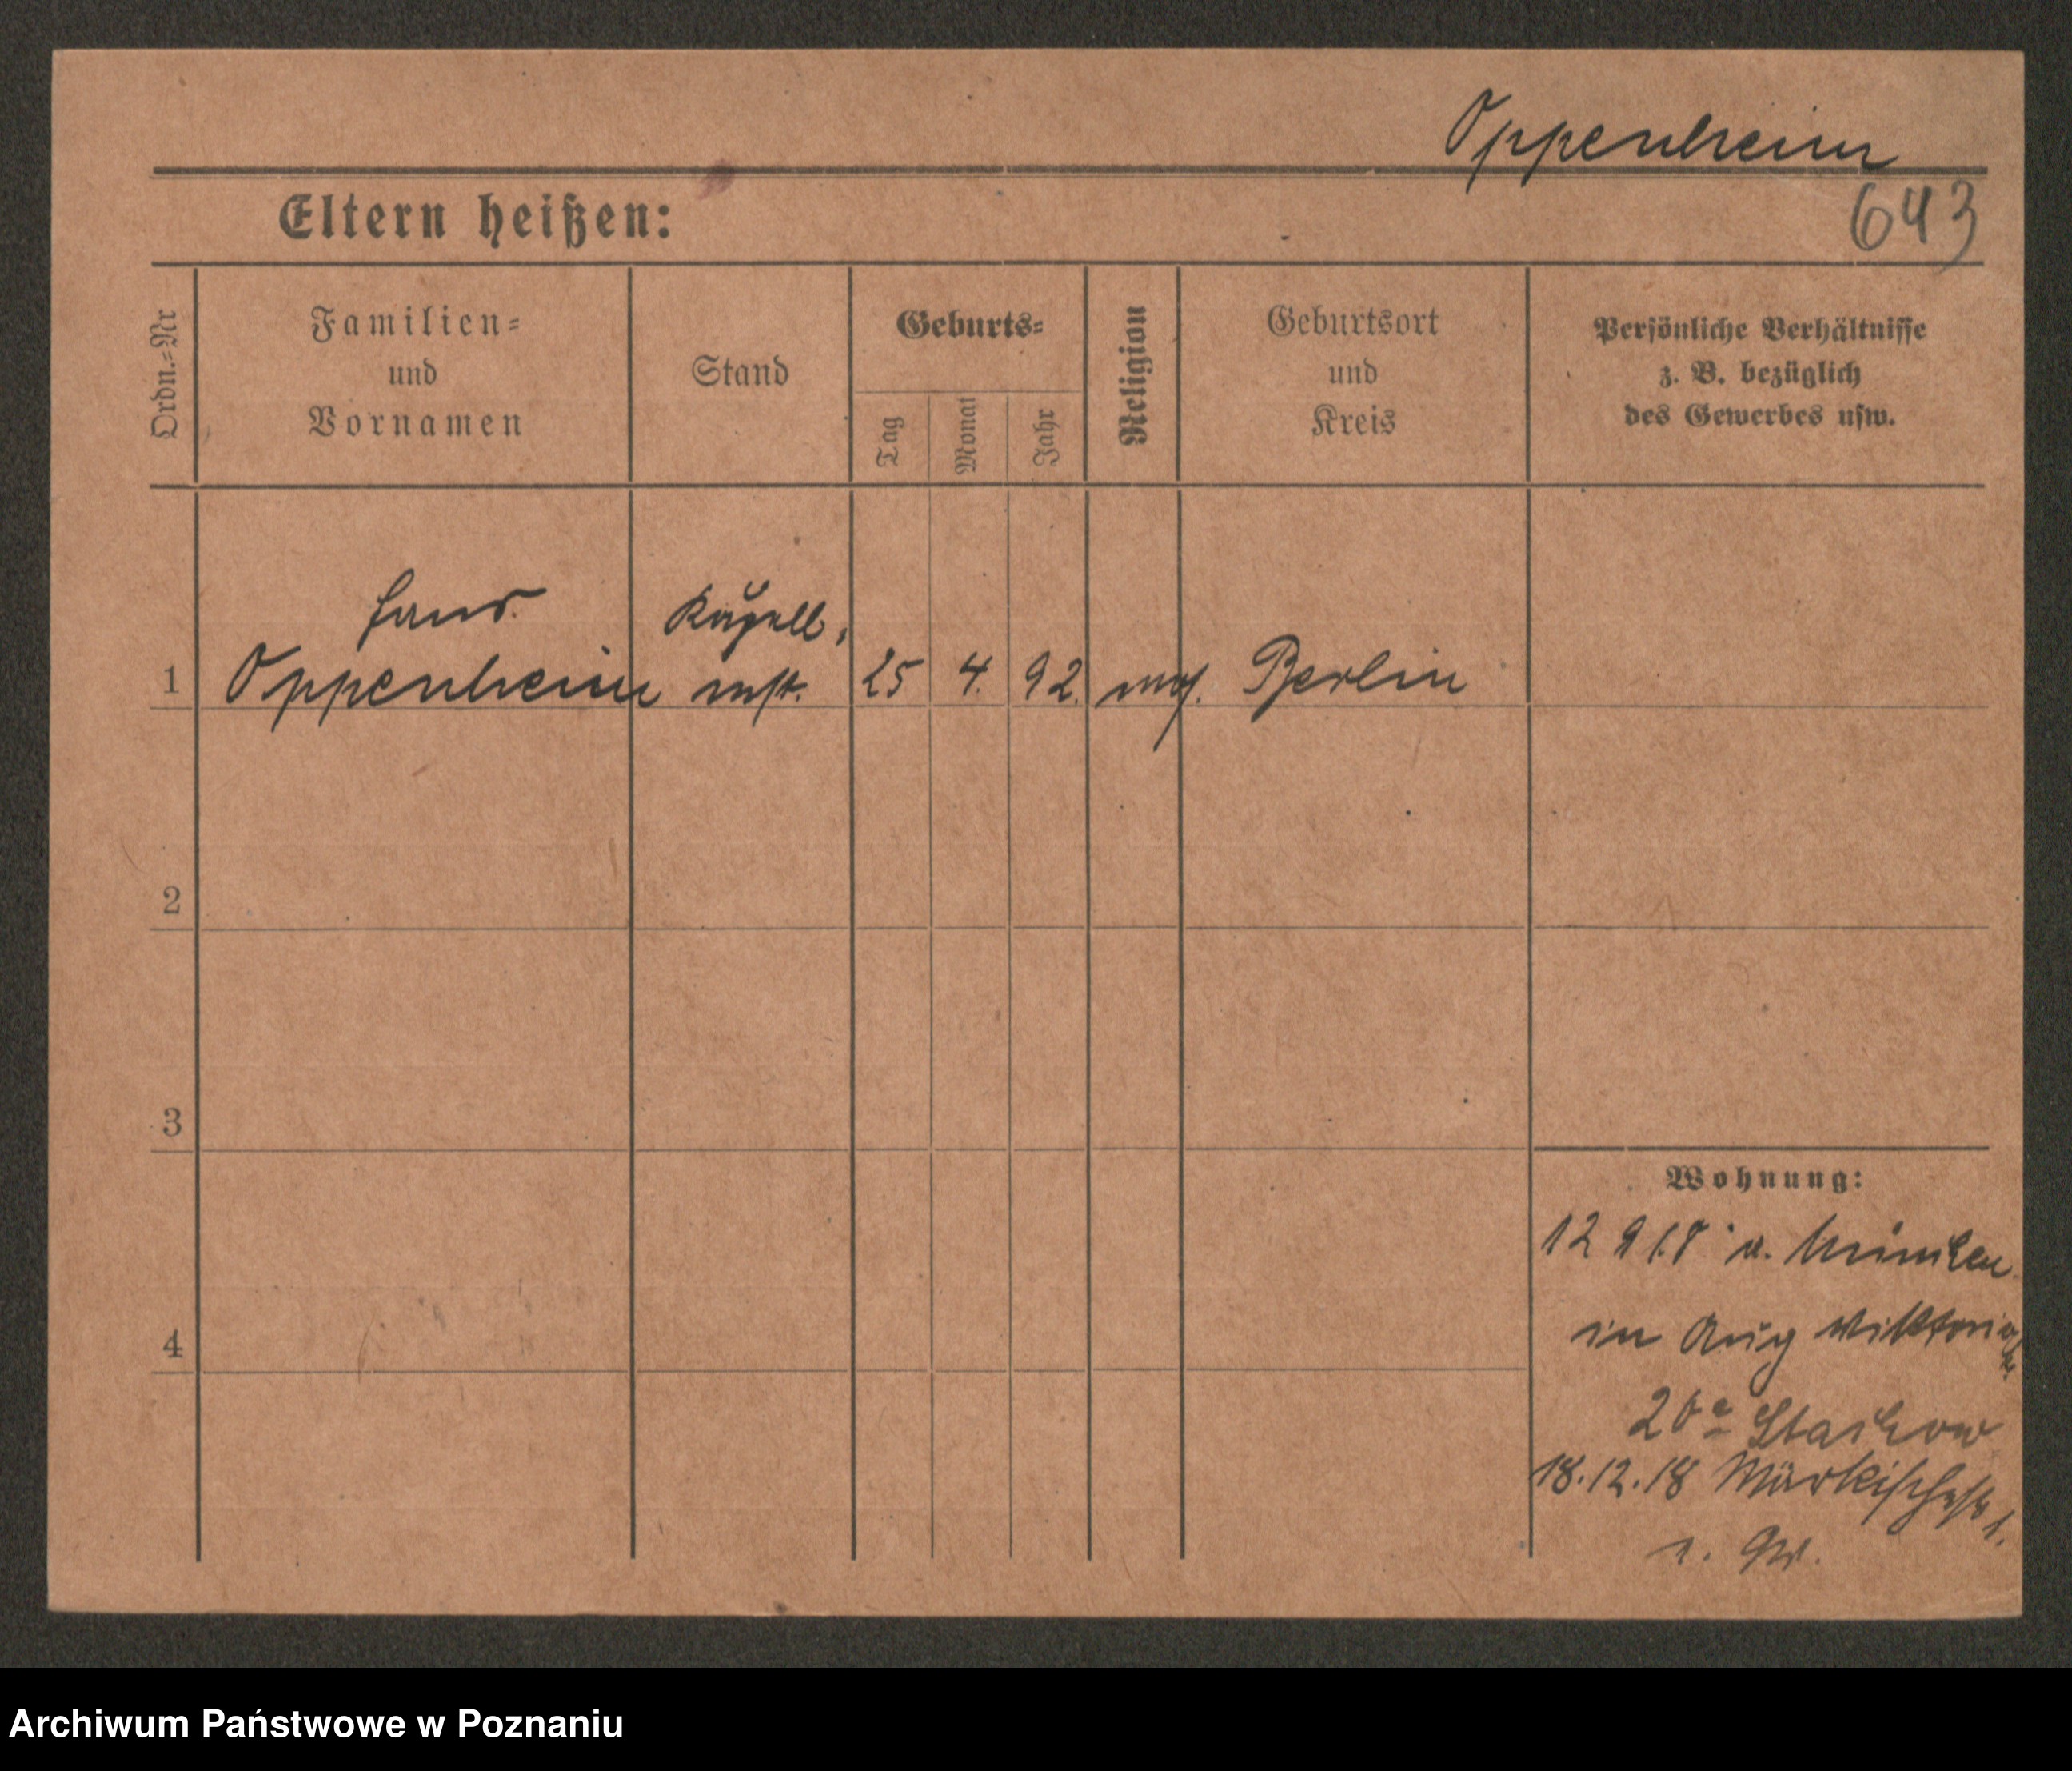 Oppenheim
643
Eltern heißen:
Ordn.=Nr
Familien=
und
Vornamen
Stand
Geburts=
Tag
Monat
Jahr
Religion
Geburtsort
und
Kreis
Persönliche Verhältnisse
z. B. bezüglich
des Gewerbes usw.
Hans
Kapell,
1 Oppenheim mstr. 25 4. 92. Berlin
2
3
4
Wohnung:
12 9 18 v. München
in Aug Viktoria
20a
18.12.18 Märkischestr 1.
Archiwum Państwowe w Poznaniu